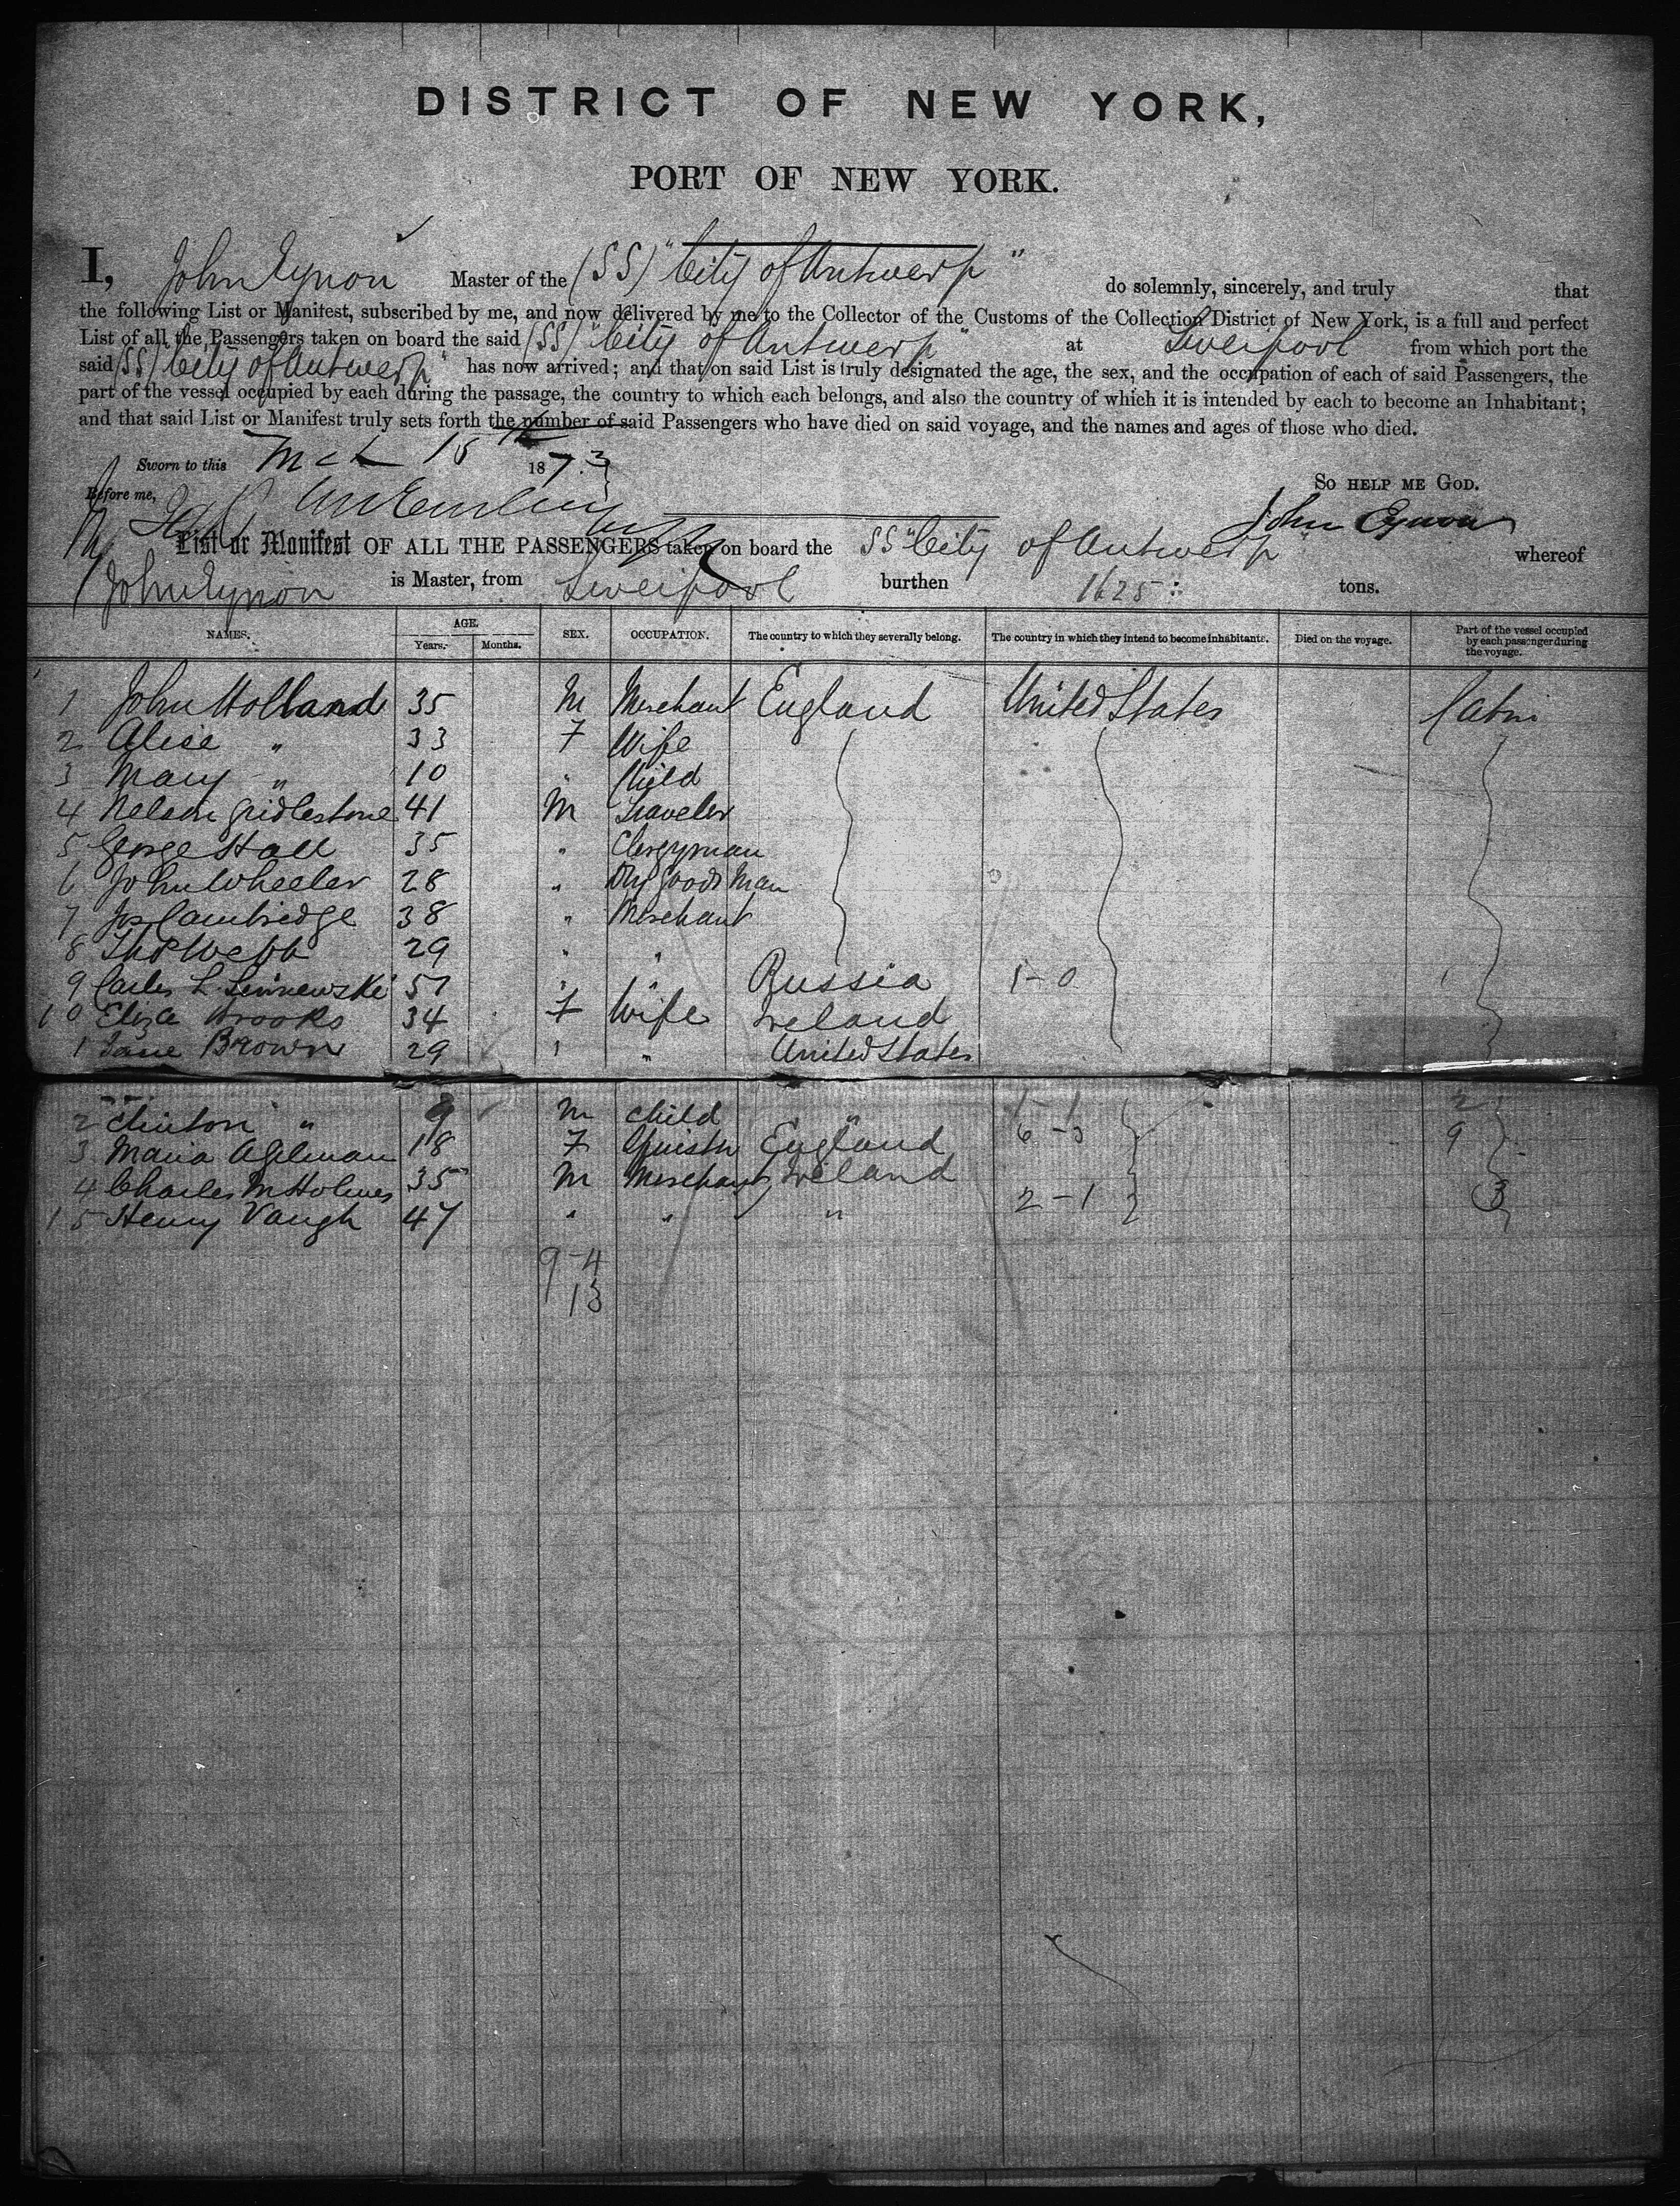 DISTRICT OF NEW YORK,
PORT OF NEW YORK.
I, John Eynon Master of the (SS) "City of Antwerp" do solemnly, sincerely, and truly that
the following List or Manifest, subscribed by me, and now delivered by me to the Collector of the Customs of the Collection District of New York, is a full and perfect
List of all the Passengers taken on board the said (SS) "City of Antwerp" at Liverpool from which port the
said (SS) "City of Antwerp" has now arrived; and that on said List is truly designated the age, the sex, and the occupation of each of said Passengers, the
part of the vessel occupied by each during the passage, the country to which each belongs, and also the country of which it is intended by each to become an Inhabitant;
and that said List or Manifest truly sets forth the number of said Passengers who have died on said voyage, and the names and ages of those who died.
Sworn to this Mch 15th 1873
So help me God.
Before me,
John Eynon
List or Manifest OF ALL THE PASSENGERS taken on board the SS "City of Antwerp" whereof
John Eynon is Master, from Liverpool burthen 1625 tons.
NAMES. AGE. Years. Months. SEX. OCCUPATION. The country to which they severally belong. The country in which they intend to become inhabitants. Died on the voyage. Part of the vessel occupied by each passenger during the voyage.
1 John Holland 35 M Merchant England United States Cabin
2 Alice " 33 F Wife
3 Mary " 10 " Child
4 Nelson Gridlestone 41 M Traveler
5 George Hall 35 " Clergyman
6 John Wheeler 28 " Dry Goods Man
7 Jos Cambridge 38 " Merchant
8 Thos Webb 29 " "
9 Carles L. 51 " " Russia 1-0
10 Eliza Brooks 34 F Wife Ireland
1 Jane Brown 29 " " United States
2 Clinton " 9 M Child " 1-1 2
3 Maria 18 F Spinstr England 6-3 9
4 Charles M Holmes 35 M Merchant Ireland
15 Henry Vaugh 47 " " " 2-1 3
9-4
13